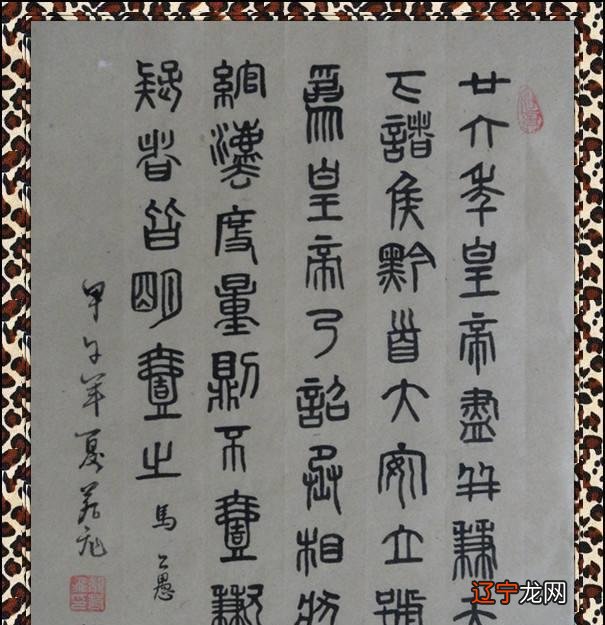 廿六年皇帝盡并兼天
下諸侯黔首大安立號
爲皇帝乃詔丞相狀
綰灋度量則不壹歉
疑者皆明壹之 馬公愚
甲午年夏若
辽宁龙网